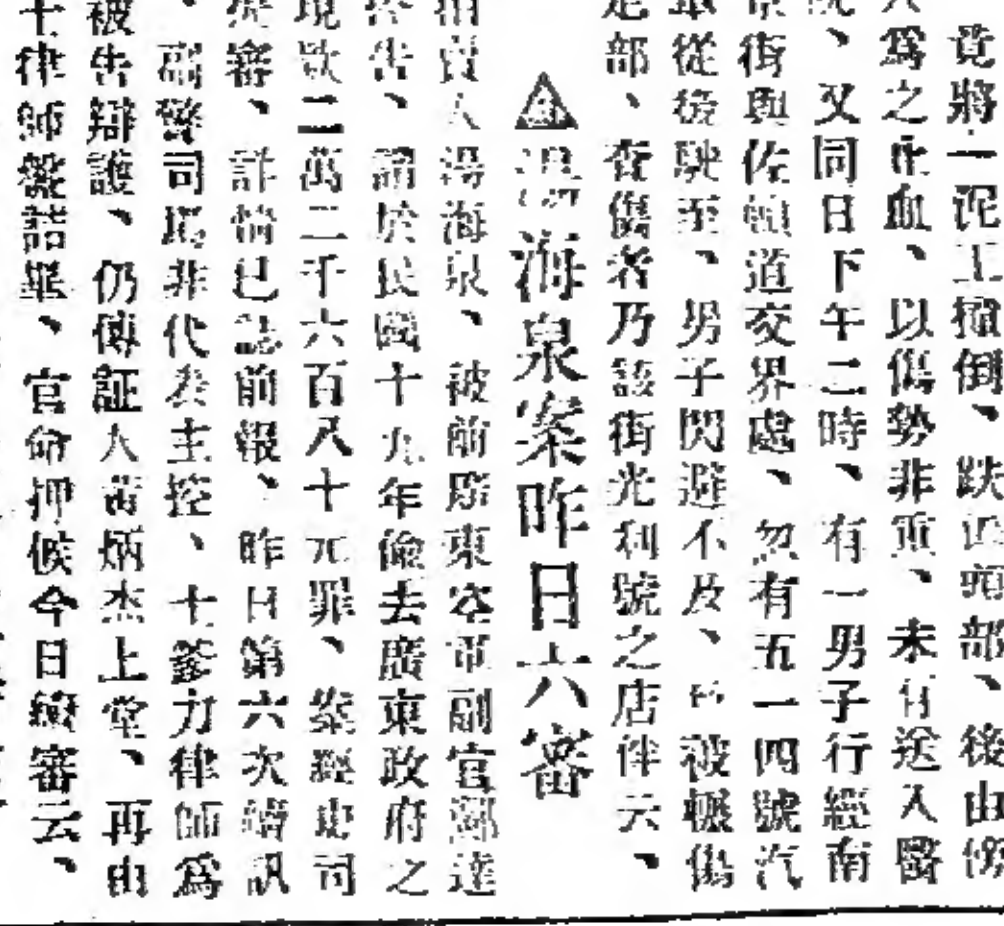 竟將一泥工撞倒、跌正頭部、後由傍
人爲之止血、以傷勢非重、未有送入醫
院、又同日下午二時、有一男子行經南
京街與佐頓道交界處、忽有五一四號汽
車從後駛至、男子閃避不及、已被輾傷
足部、查傷者乃該街光利號之店伴云、
湯海泉案昨日六審
拍賣人湯海泉、被前廣東空軍副官鄭達
控告、謂於民國十九年儉去廣東政府之
現欵二萬二千六百八十元罪、案經史司
提審、詳情已誌前報、昨日第六次續訊
、副警司馬非代表主控、十爹力律師爲
被告辯護、仍傳証人黃炳杰上堂、再由
律師盤詰畢、官命押候今日續審云、